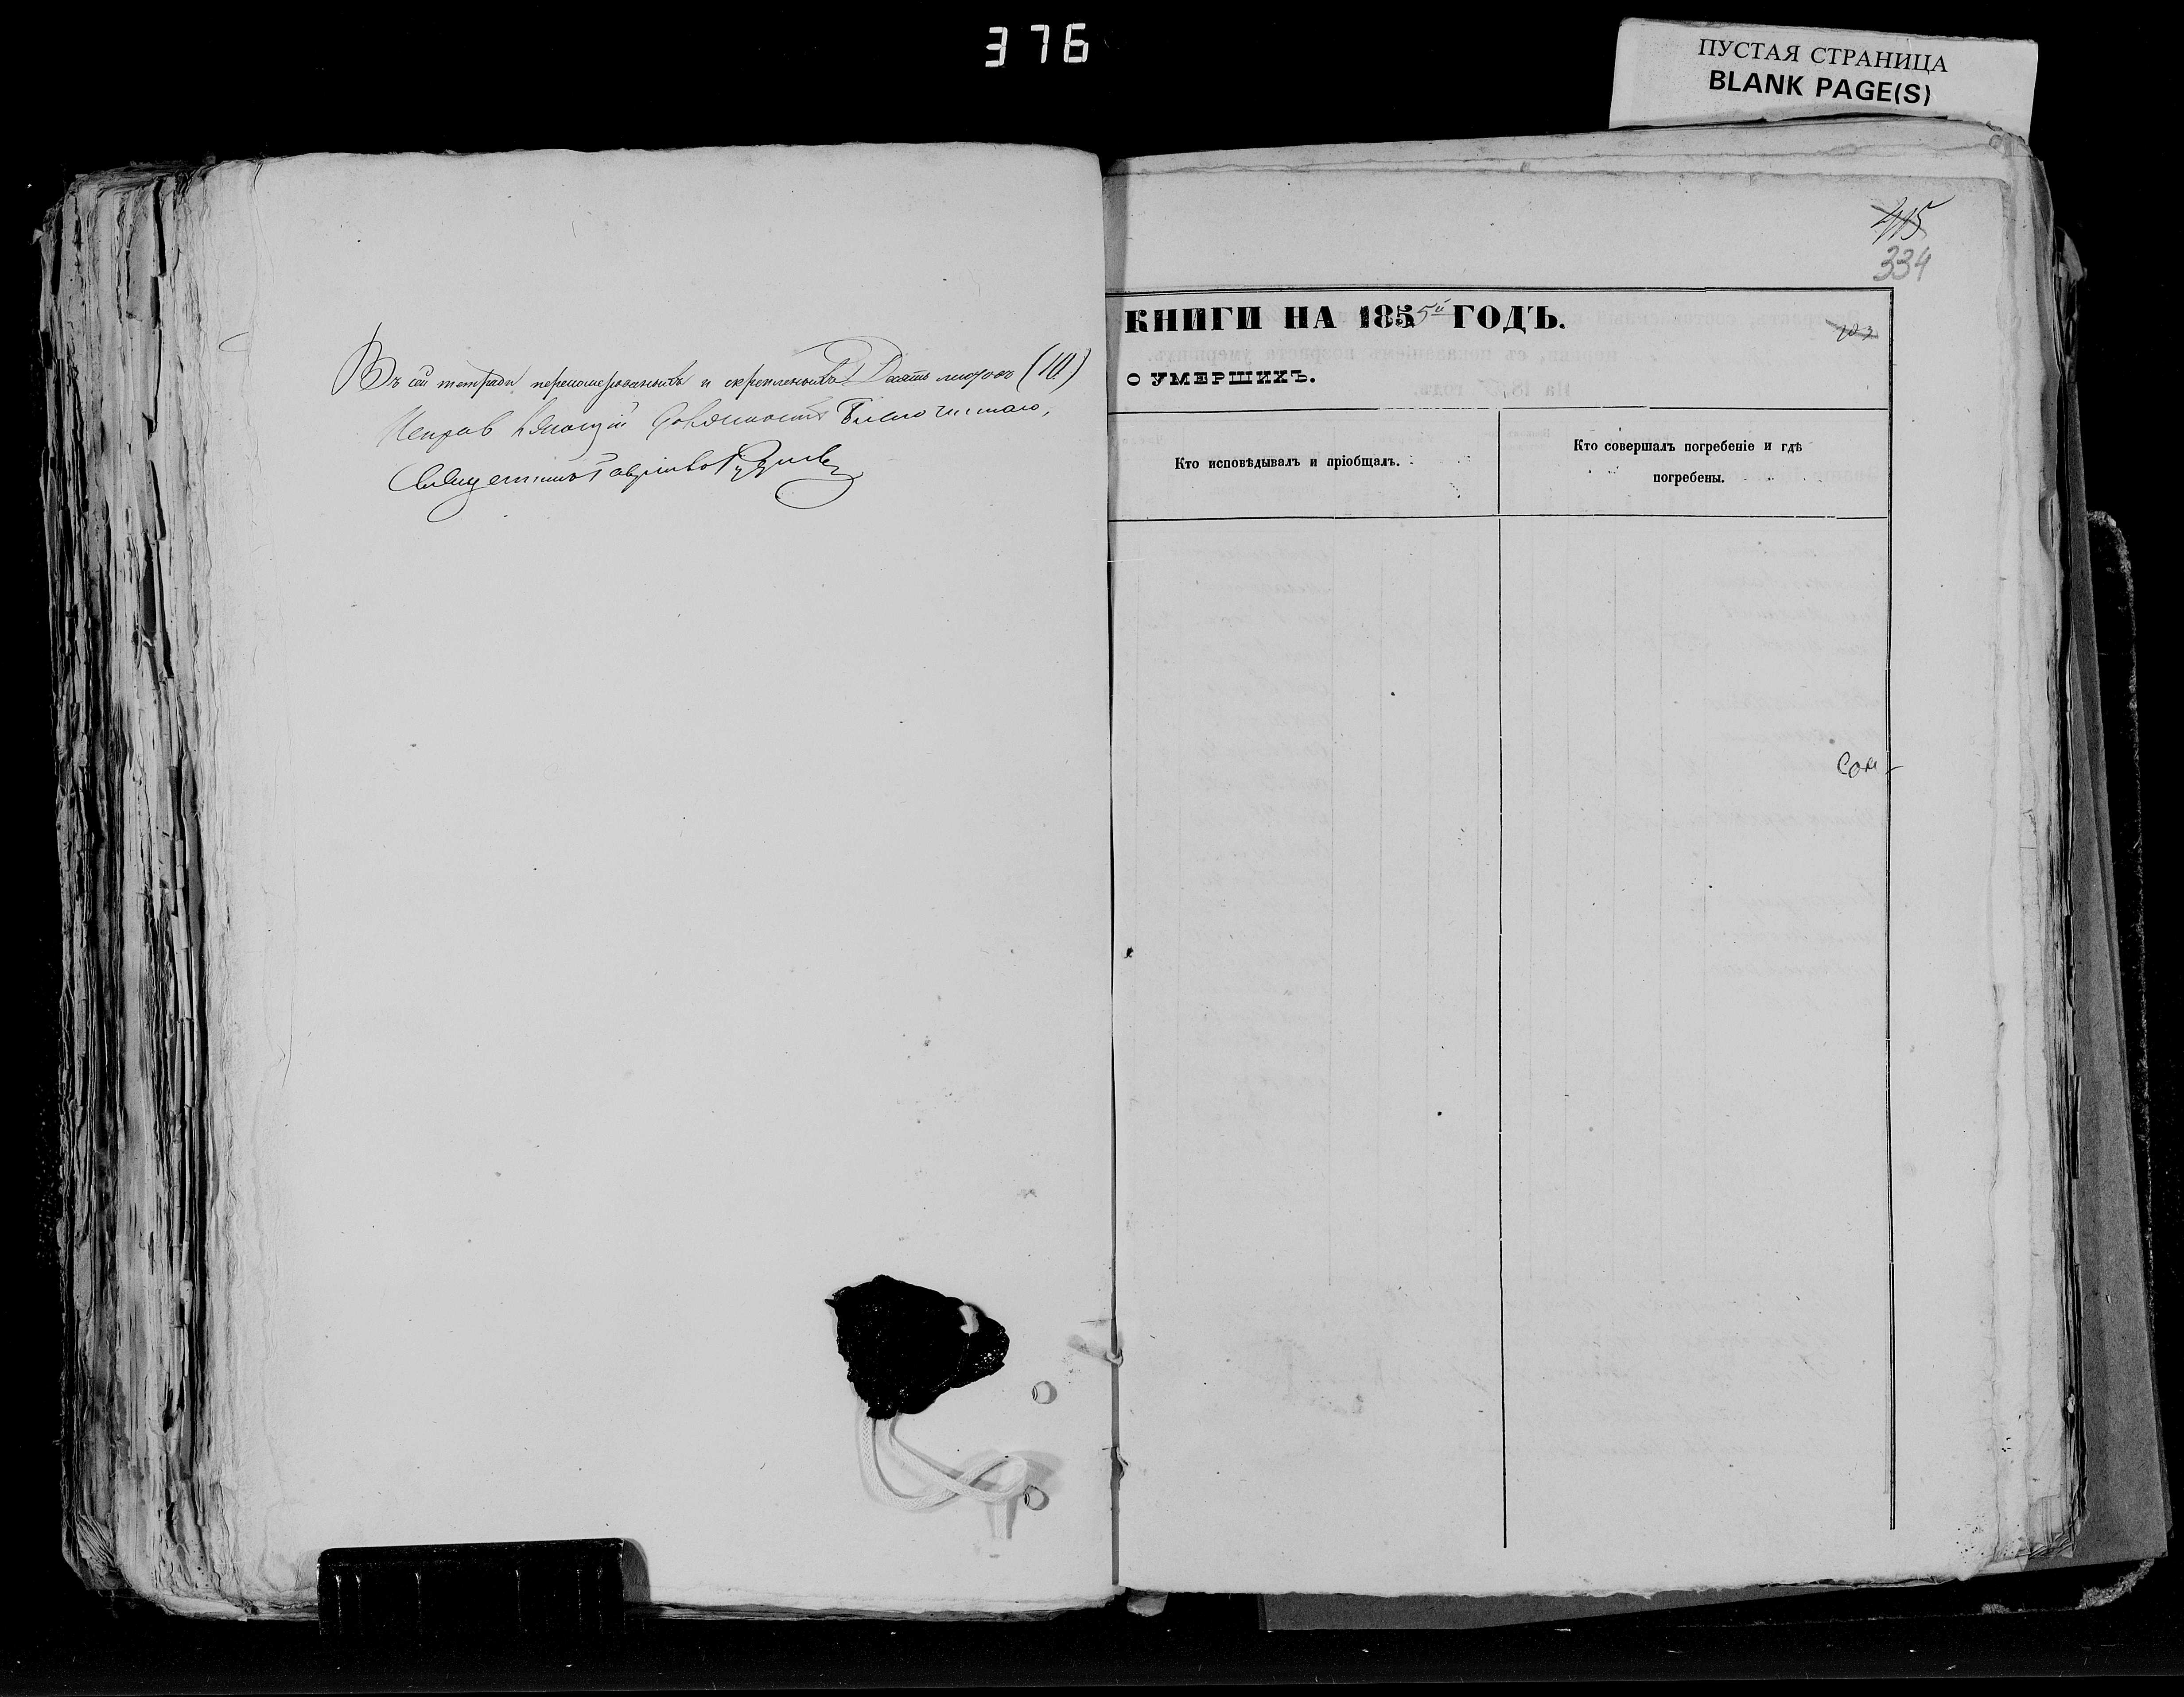 376
ПУСТАЯ СТРАНИЦА
BLANK PAGE(S)
Въ сей тетради перенумерованныхъ и скрепленныхъ Десять листовъ (10)
Исправляющій должность Благочиннаго,
Священникъ Гавріилъ
415
334
КНИГИ НА 1855й ГОДЪ.
О УМЕРШИХЪ.
Кто исповѣдывалъ и пріобщалъ.
Кто совершалъ погребеніе и гдѣ
погребены.